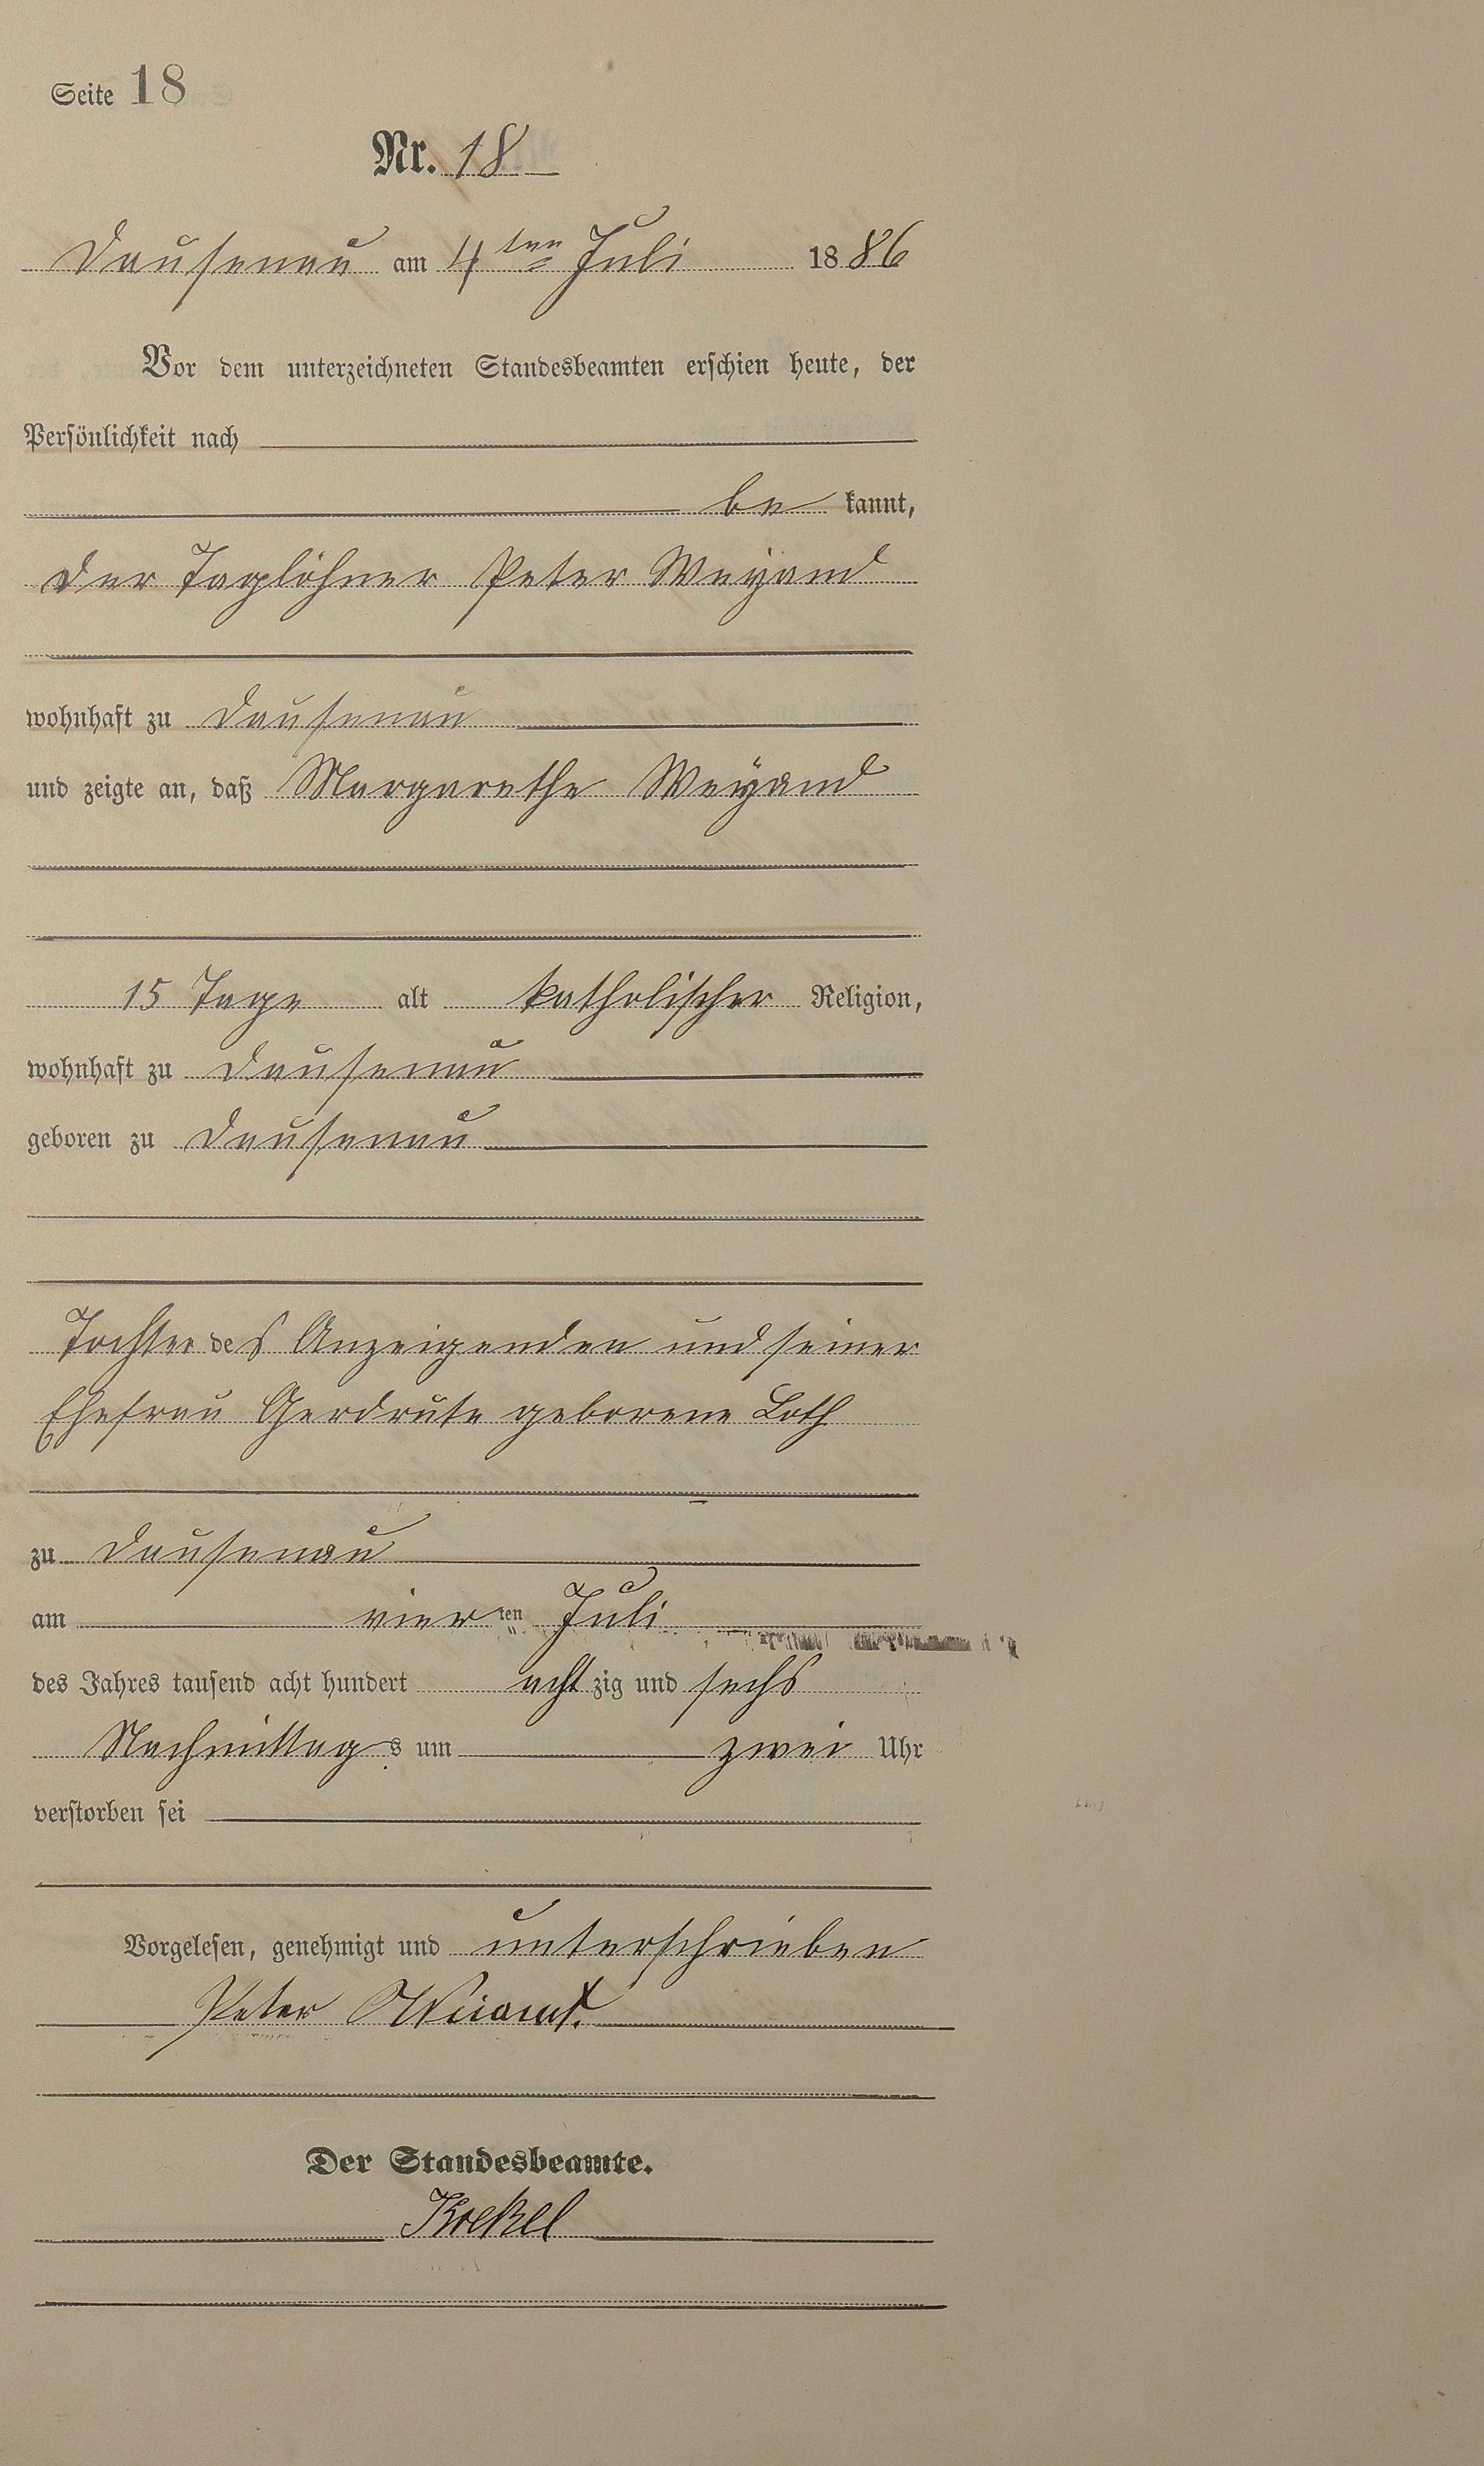 Seite 18
Nr. 18
Dausenau am 4ten Juli 1886
Vor dem unterzeichneten Standesbeamten erschien heute, der
Persönlichkeit nach
be kannt,
der Taglöhner Peter Weyand
wohnhaft zu Dausenau
und zeigte an, daß Margarethe Weyand
15 Tage alt katholischer Religion,
wohnhaft zu Dausenau
geboren zu Dausenau
Tochter des Anzeigenden und seiner
Ehefrau Gerdrute geborene Loth
zu Dausenau
am vierten Juli
des Jahres tausend acht hundert achtzig und sechs
Nachmittags um zwei Uhr
verstorben sei
Vorgelesen, genehmigt und unterschrieben
Peter
Der Standesbeamte.